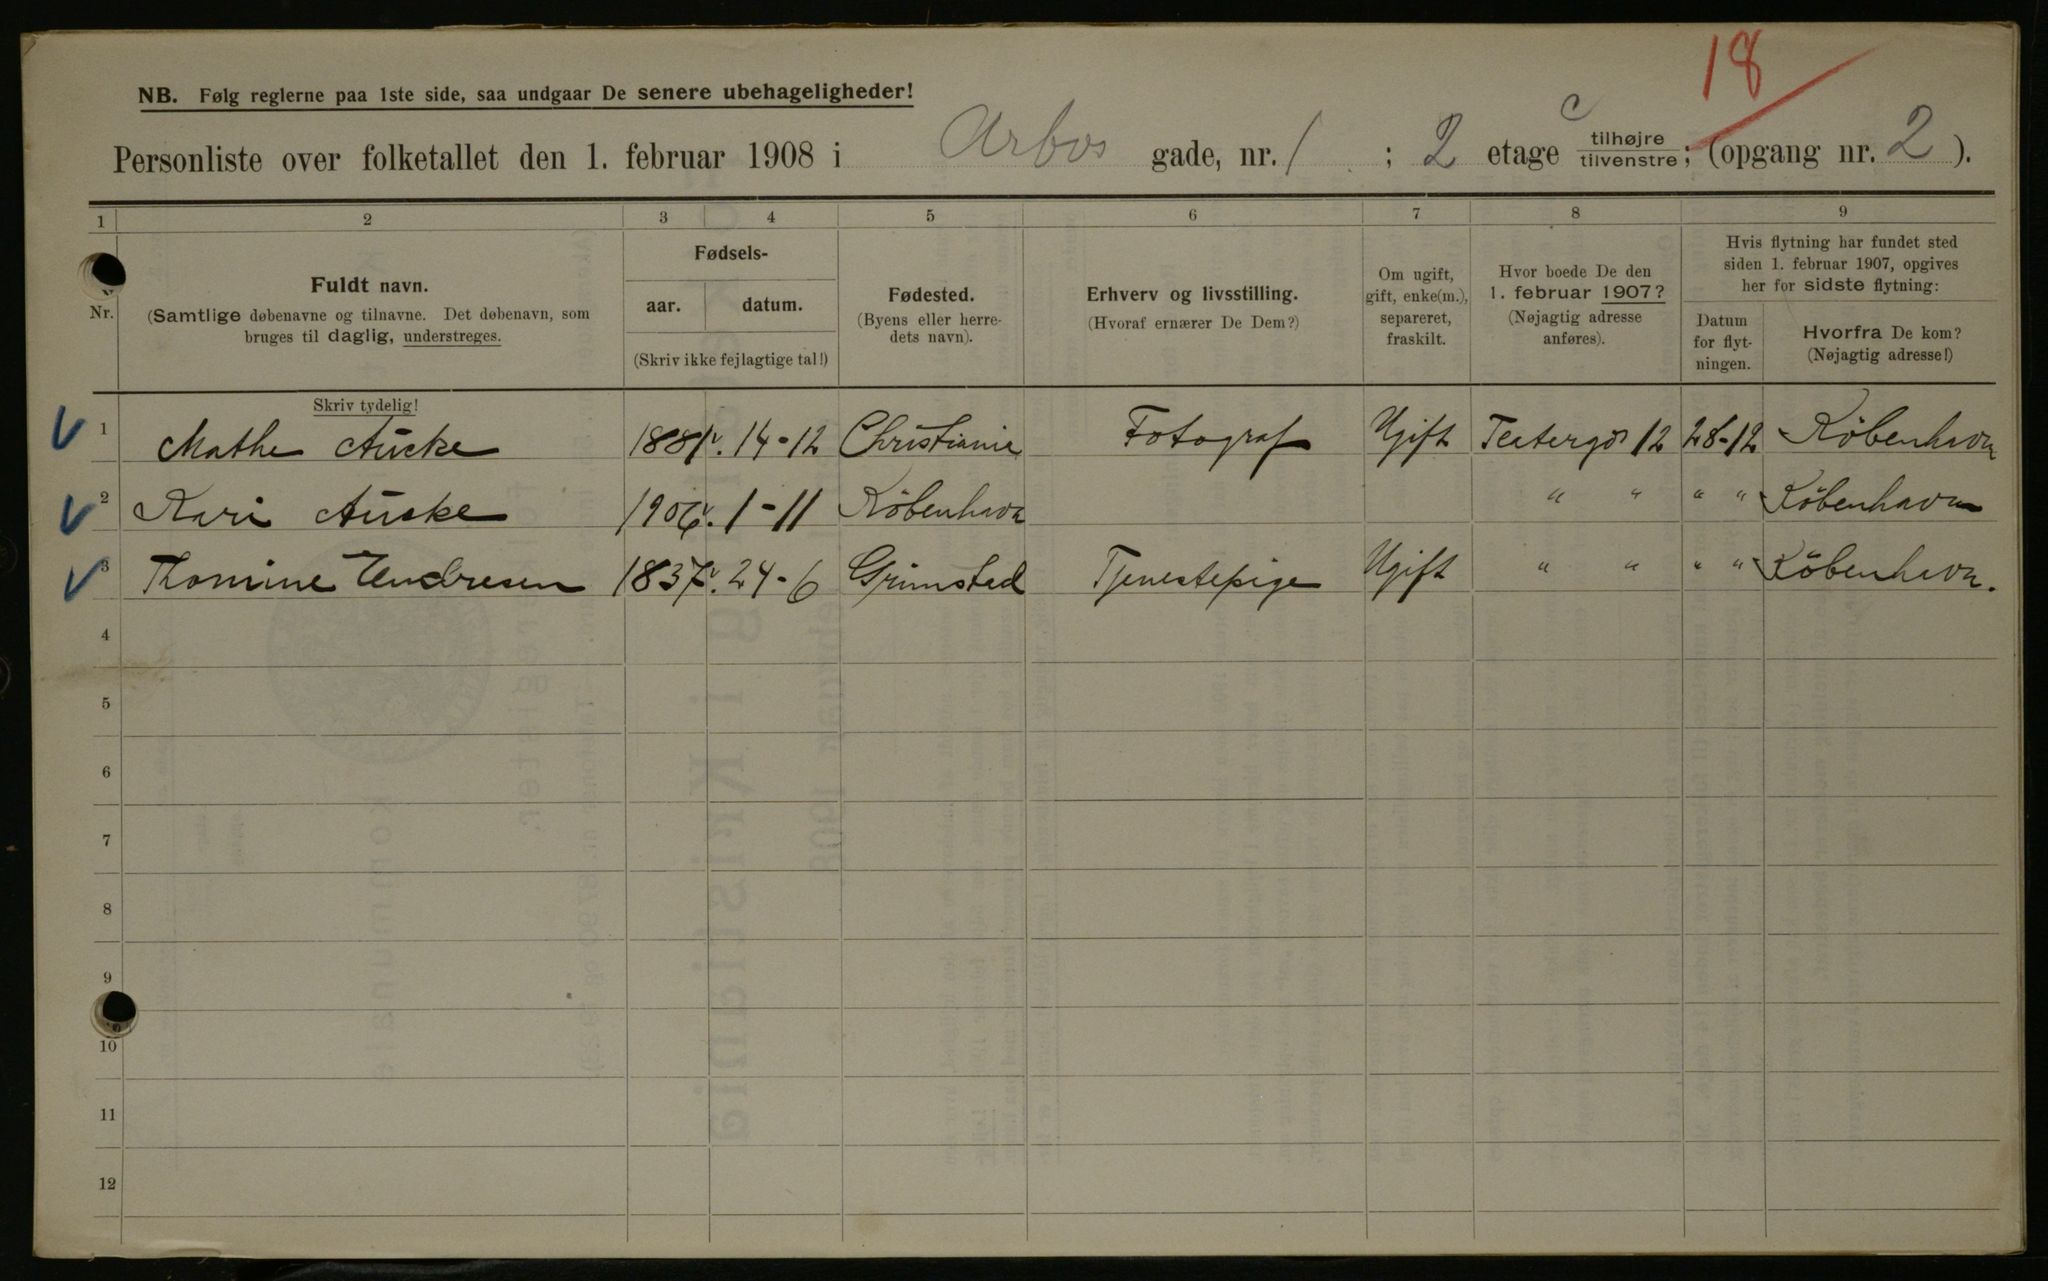 18
NB. Følg reglerne paa 1ste side, saa undgaar De senere ubehageligheder!
Personliste over folketallet den 1. februar 1908 i Arbos gade, nr. 1 ; 2 etage c tilhøjre tilvenstre; (opgang nr. 2).
1 2 3 4 5 6 7 8 9
Nr.
Fuldt navn.
(Samtlige døbenavne og tilnavne. Det døbenavn, som
bruges til daglig, understreges.
Skriv tydelig!
Fødsels-
aar. datum.
(Skriv ikke fejlagtige tal!)
Fødested.
(Byens eller herre-
dets navn).
Erhverv og livsstilling.
(Hvoraf ernærer De Dem?)
Om ugift,
gift, enke(m.),
separeret,
fraskilt.
Hvor boede De den
1. februar 1907?
(Nøjagtig adresse
anføres).
Hvis flytning har fundet sted
siden 1. februar 1907, opgives
her for sidste flytning:
Datum
for flyt-
ningen.
Hvorfra De kom?
(Nøjagtig adresse!)
1 Mathe 1881 14-12 Christiania Fotograf Ugift Teatergd 12 28-12 København
2 Kari 1906 1-11 København " " " " København
3 Thomine Endresen 1837 24-6 Grimstad Tjenestepige Ugift " " " " København.
4
5
6
7
8
9
10
11
12